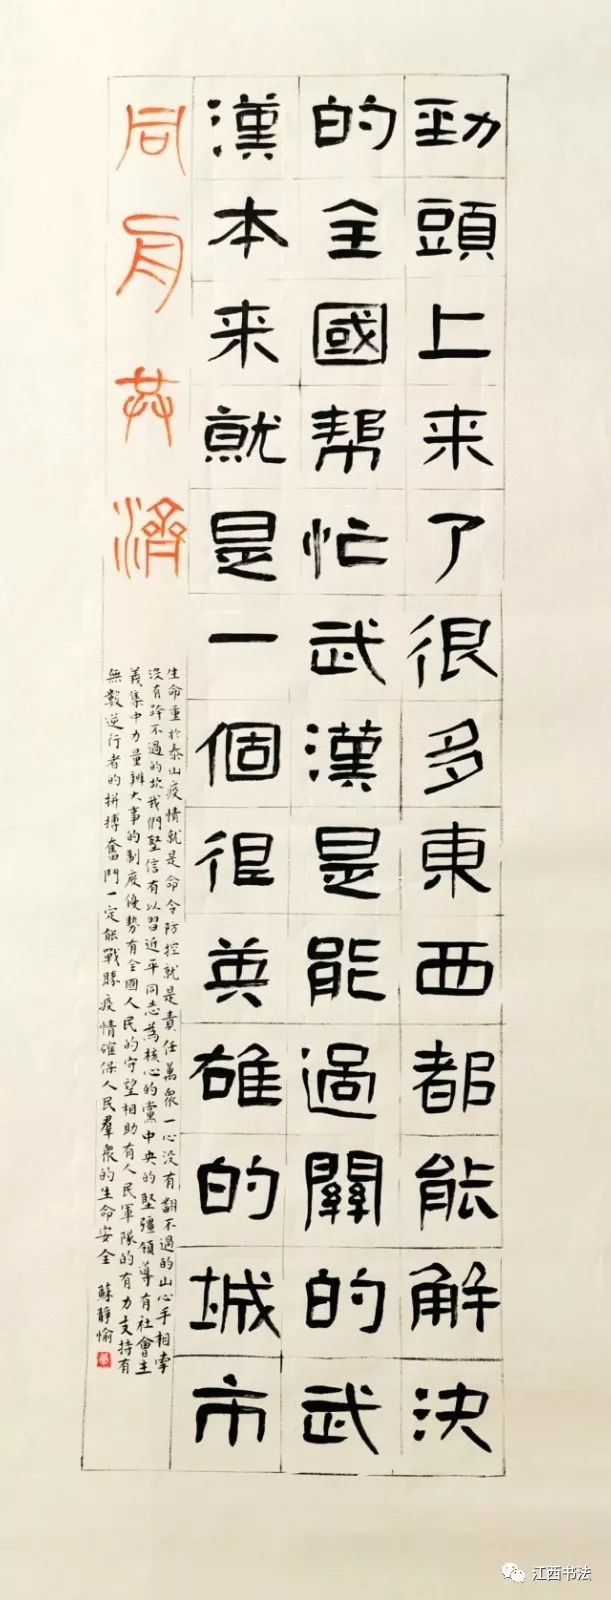 勁頭上来了很多東西都能解決
的全國帮忙武漢是能過關的武
漢本来就是一個很英雄的城市
同舟共濟
生命重於泰山疫情就是命令防控就是責任萬衆一心没有翻不過的山心手相牽
没有跨不過的坎我們堅信有以習近平同志為核心的黨中央的堅彊領導有社會主
義集中力量辦大事的制度優勢有全國人民的守望相助有人民軍隊的有力支持有
無數逆行者的拼搏奮鬥一定能戰勝疫情確保人民羣衆的生命安全 蘇靜愉
江西书法